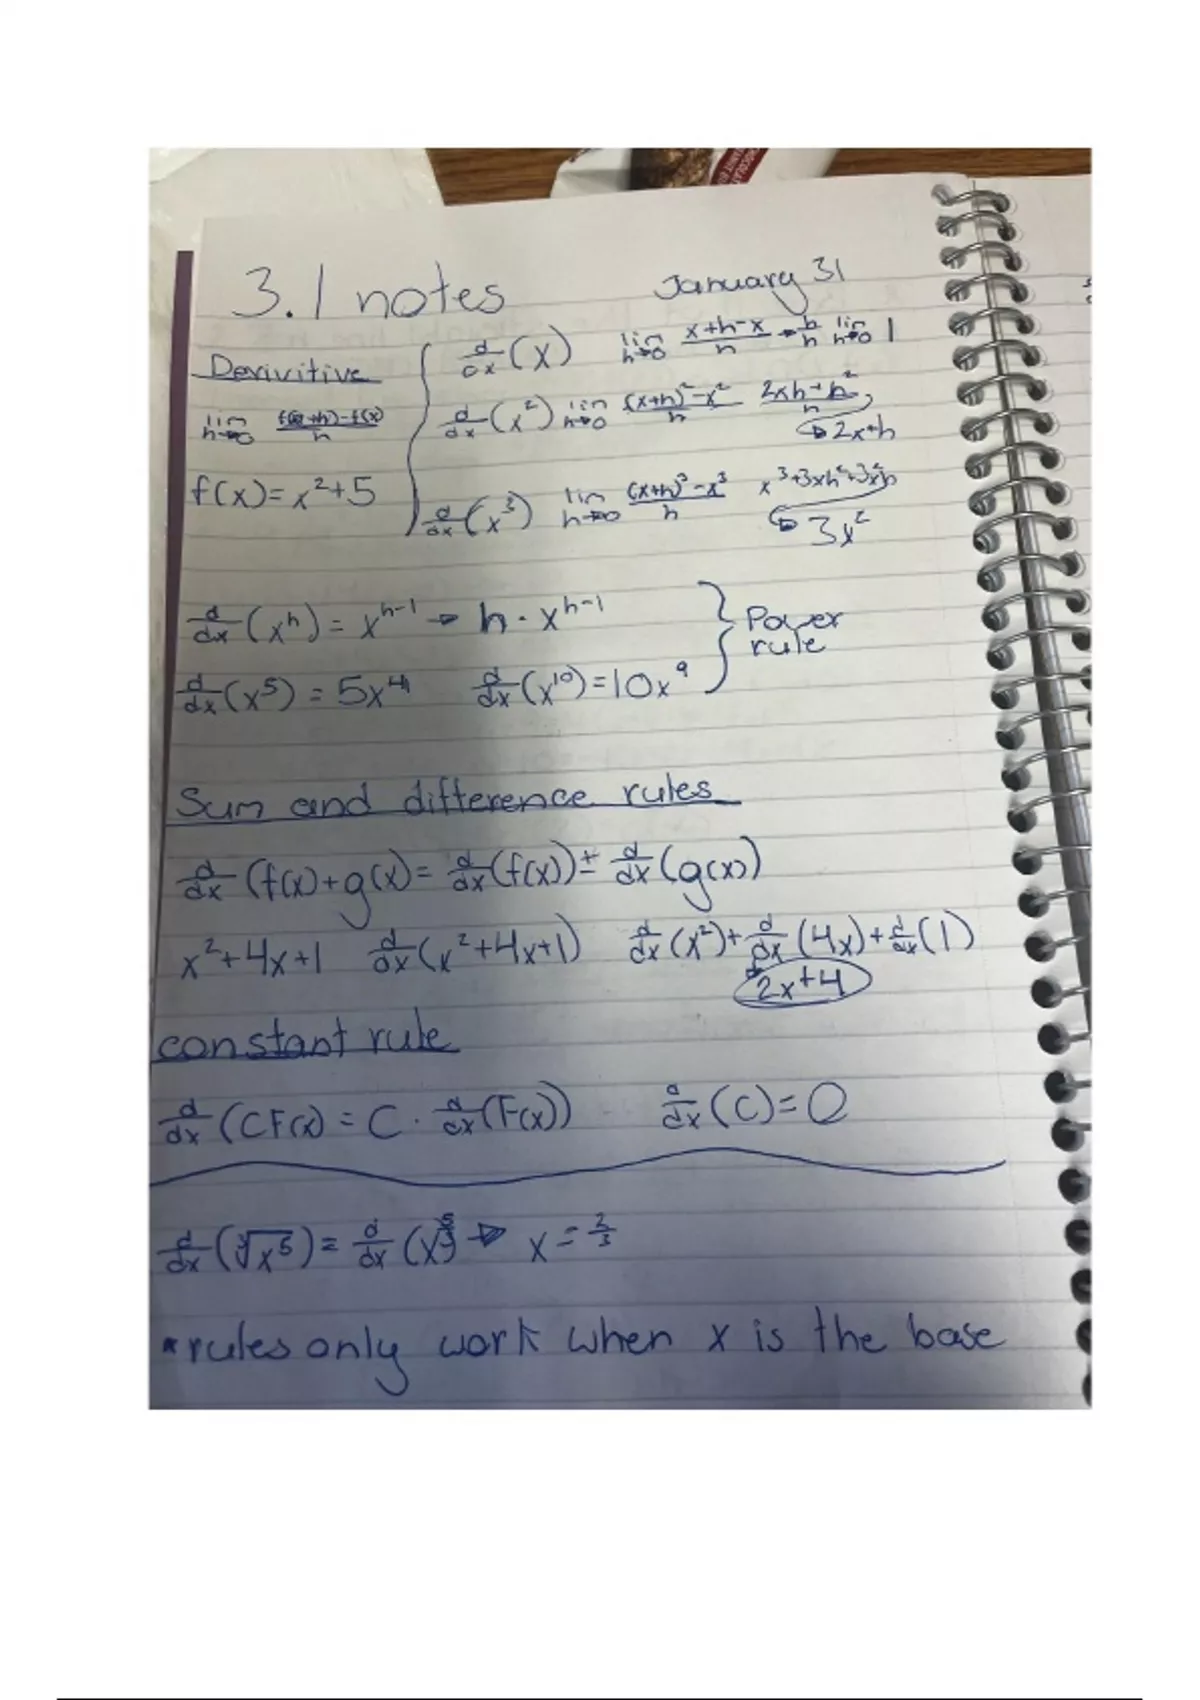 3.1 notes January 31
Derivitive
lim h→0 f(x+h)-f(x)/h
f(x)= x²+5
d/dx (x) lim h→0 x+h-x/h → h/h lim h→0 1
d/dx (x²) lim h→0 (x+h)²-x²/h 2xh+h²/h
→ 2x+h
d/dx (x³) lim h→0 (x+h)³-x³/h x³+3xh²+3x²h
→ 3x²
d/dx (xʰ) = xʰ⁻¹ → h · xʰ⁻¹
d/dx (x⁵) = 5x⁴ d/dx (x¹⁰) = 10x⁹
} Power
rule
Sum and difference rules
d/dx (f(x)+g(x) = d/dx (f(x)) ± d/dx (g(x))
x²+4x+1 d/dx (x²+4x+1) d/dx (x²) + d/dx (4x) + d/dx (1)
2x+4
constant rule
d/dx (CF(x) = C · d/dx (F(x)) d/dx (C) = 0
d/dx (∛x⁵) = d/dx (x^5/3 → x = 2/3
*rules only work when x is the base